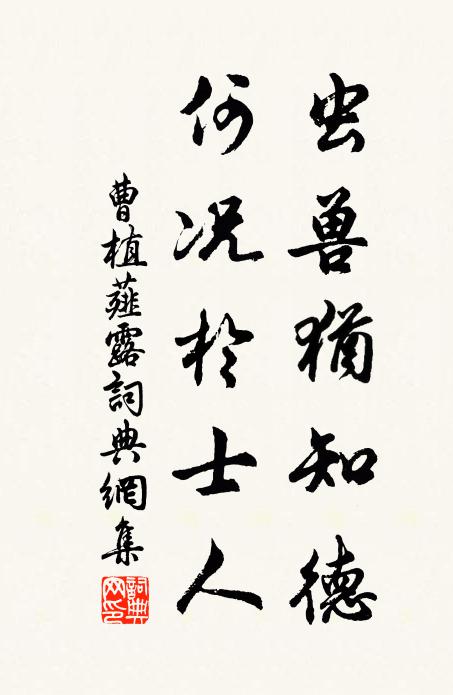 虫兽猶知德
何况於士人
曹植薤露詞典網集
詞典
网印